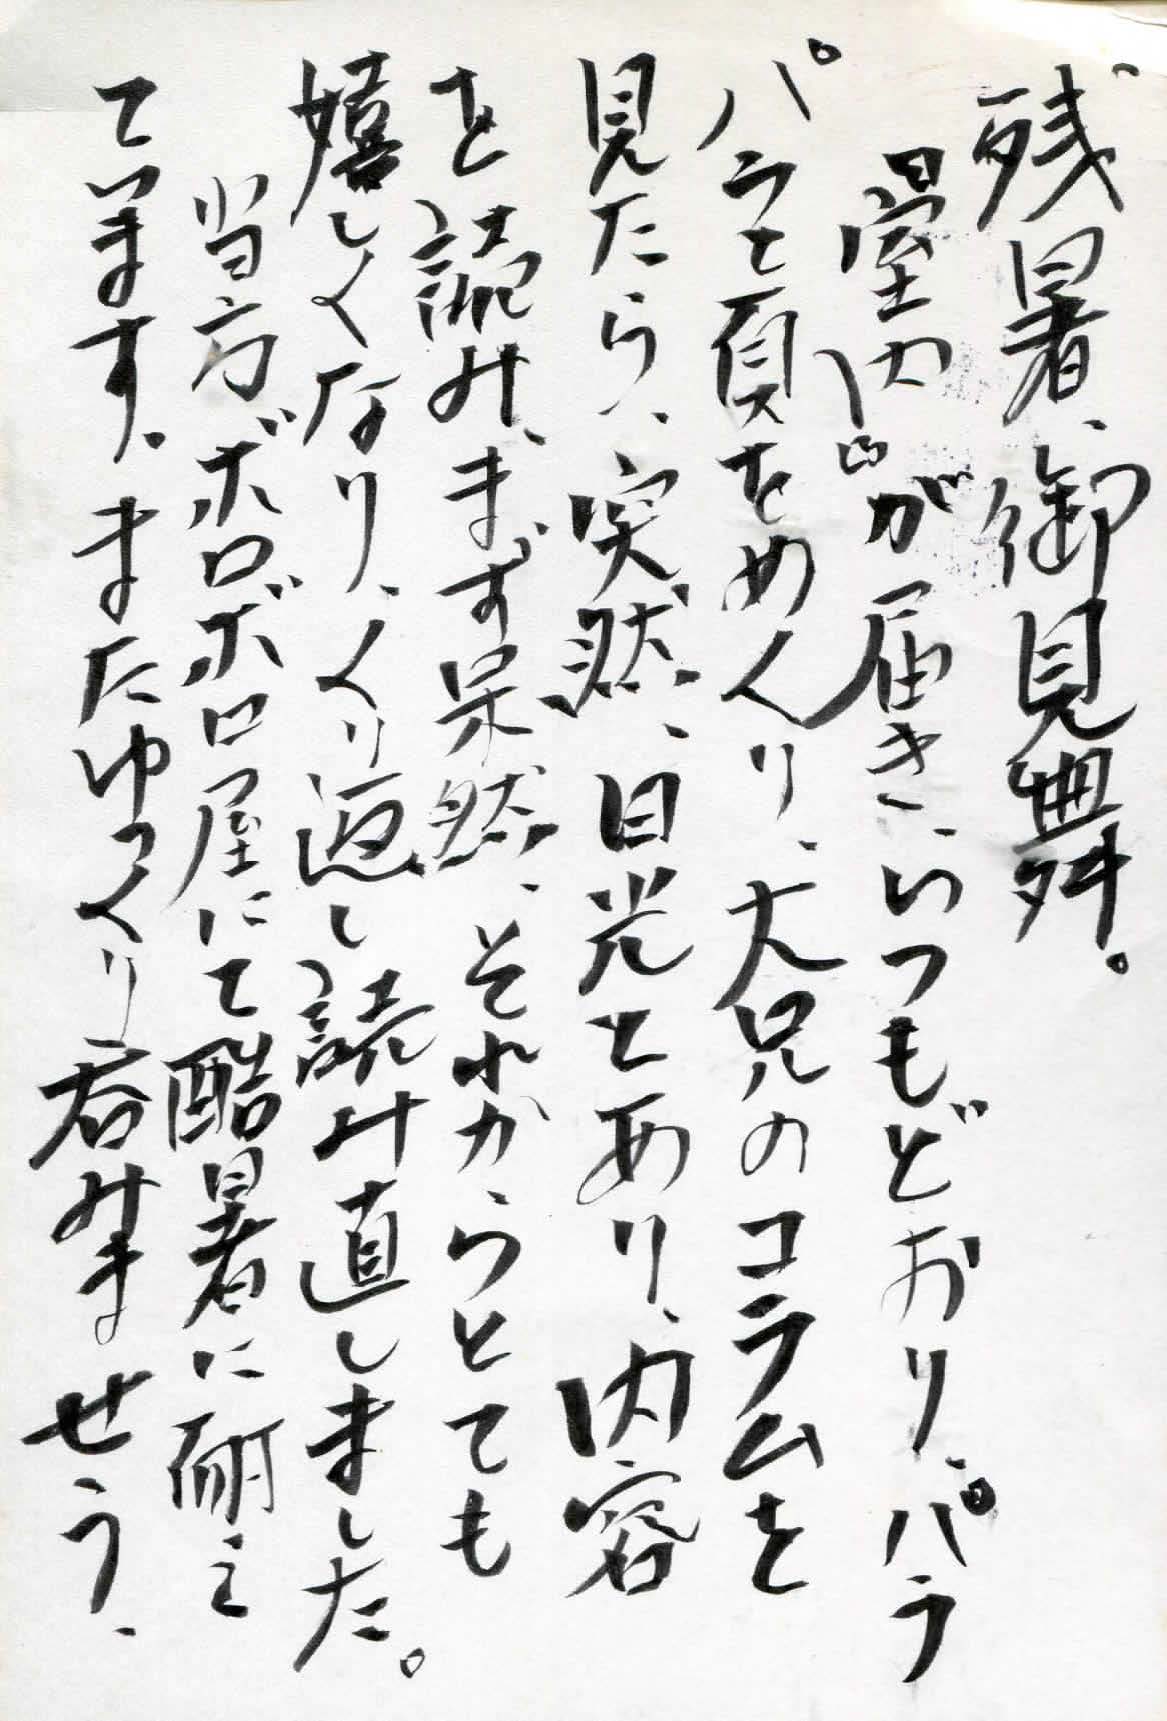 残暑、御見舞。
「室内」が届き、いつもどおり、パラ
パラと頁をめくり、大兄のコラムを
見たら、突然、日光とあり、内容
を読み、まず呆然、それからとても
嬉しくなり、くり返し読み直しました。
当方ボロボロ屋にて酷暑に耐え
ています。またゆっくり呑みませう、